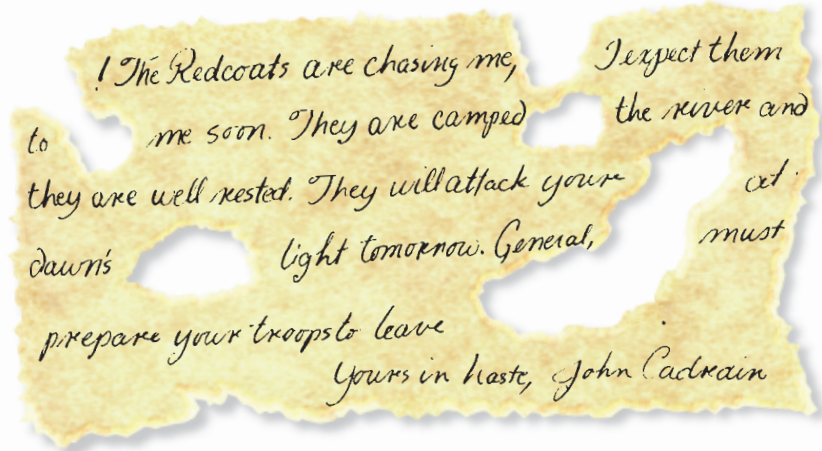 ! The Redcoats are chasing me, I expect them
to me soon. They are camped the river and
they are well rested. They will attack your at
dawn's light tomorrow. General, must
prepare your troops to leave
Yours in haste, John Cadrain